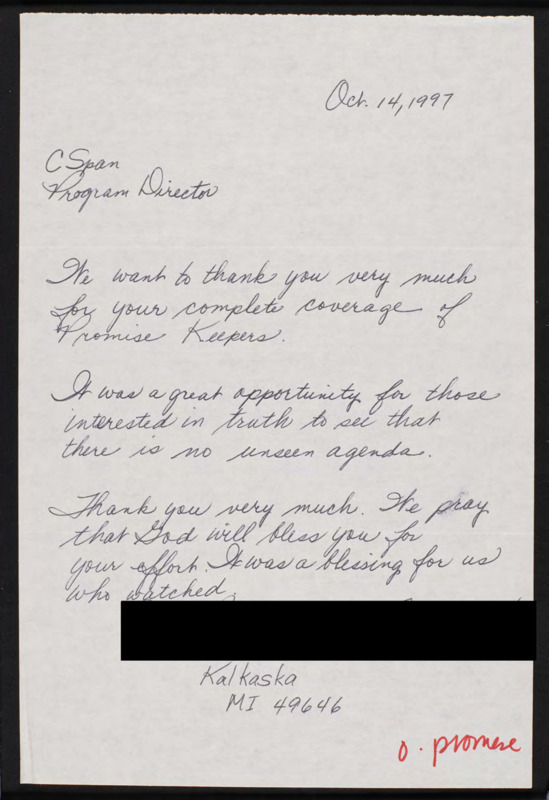 Oct. 14, 1997
C Span
Program Director
We want to thank you very much
for your complete coverage of
Promise Keepers.
It was a great opportunity for those
interested in truth to see that
there is no unseen agenda.
Thank you very much. We pray
that God will bless you for
your effort. It was a blessing for us
who watched.
Kalkaska
MI 49646
0. promese